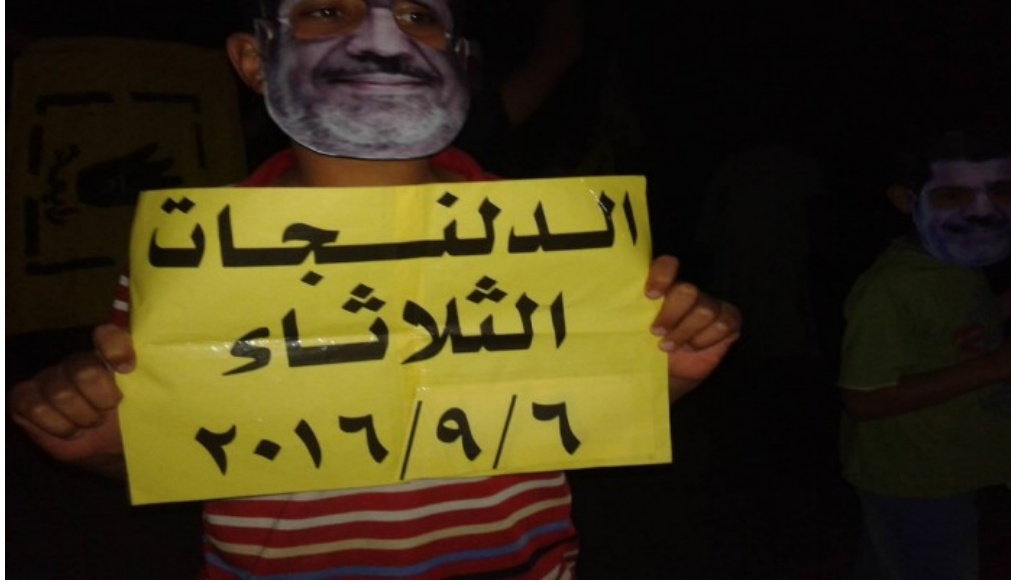 الدلنجات
الثلاثاء
٦/٩/٢٠١٦